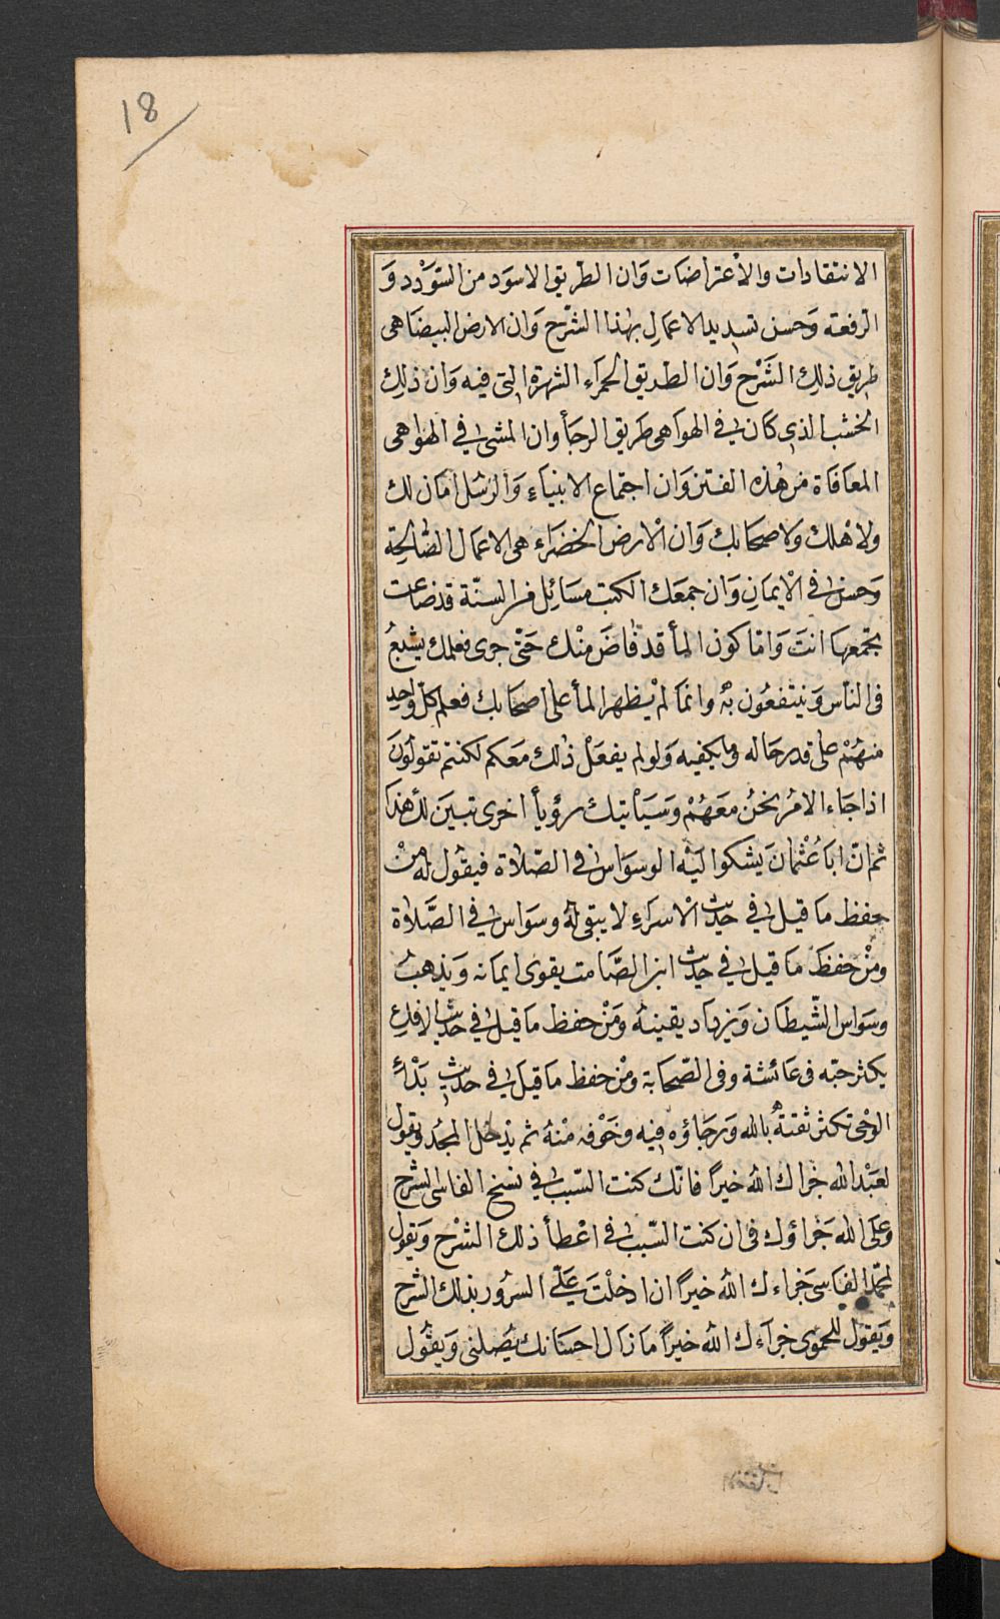 18
الانتقادات والاعتراضات وَان الطريق الاسوَد من التوَدد وَ
الرفعة وَحسن تسديد الاعمالِ بهٰذا الشّرح وَان الارض البيضَا هى
طريق ذلِك الشَرْح وَان الطريق الحمرَاء الشهرة التى فيه وَان ذلِكَ
الخشب الذى كان فى الهوَا هى طريق الرجَأ وان المشى فى الهوَا هى
المعَافَاة من هٰذه الفتن وَان اجتماع الانبيَاءِ وَالرسُل امَان لك
ولاهْلك ولاصحَابك وَان الْارض الخضرَاء هى الاعمَال الصَالحِة
وَحسن فى الْايمَانِ وَان جمعَك الكتب مسَائِل من السنّة قد ضَاعت
تجمعهَا انتَ وَامّا كون المأ قد فَاضَ منْك حَتّى جرى فعلمك يشيعُ
فى الناس وَينتفعُون بهُ وانمَا لم يظهر المأ على اصحَابك فعلم كلّ وَاحِدٍ
منهُمْ على قدر حَاله وَما يكفيه وَلو لم يفعَلْ ذٰلك معَكم لكنتم تقولونَ
اذا جَاء الامرُ نحْنُ معَهُمْ وَسَيَأتيك رؤيأ اخرى تبين لك هٰذا
ثم انّ ابَا عُثْمانَ يشكوا ليَه الوسوَاس فى الصّلاة فيقُول له منْ
حفظ مَا قيل فى حَدِيْث الْاسرَاءِ لا يبقى لهُ وسوَاس فى الصَّلاة
ومنْ حفظَ مَا قيل فى حَدِيث ابن الصَّامت يقوى ايمَانه وَيذهبُ
وسوَاس الشّيطَان وَيزدَاد يقينهُ وَمَنْ حفظ مَا قيل فى حَديث الافك
يكثر حبّه فى عَائشة وفى الصّحَابة ومنْ حفظ مَا قيل فى حديث بَدْأ
الوحْى تكثر ثقتهُ بالله وَرجَاؤه فيه وخَوْفه منْهُ ثم يَدخل المجد وَيقول
لعَبْد الله جَزاك اللهُ خيراً فانّك كنت السّبب فى نسخ الفاسى لشرح
وَعلَى الله جَزاؤك فى ان كنت السّبب فى اعْطأ ذلك الشرْح وَيقول
لمحمّد الفَاسى جَزاءك اللهُ خيراً ان ادخلْتَ عَلىّ السرُور بذلك الشرح
وَيقول للحموى جزآءك الله خيراً مَا زَال احسَانك يَصلنى وَيقُول